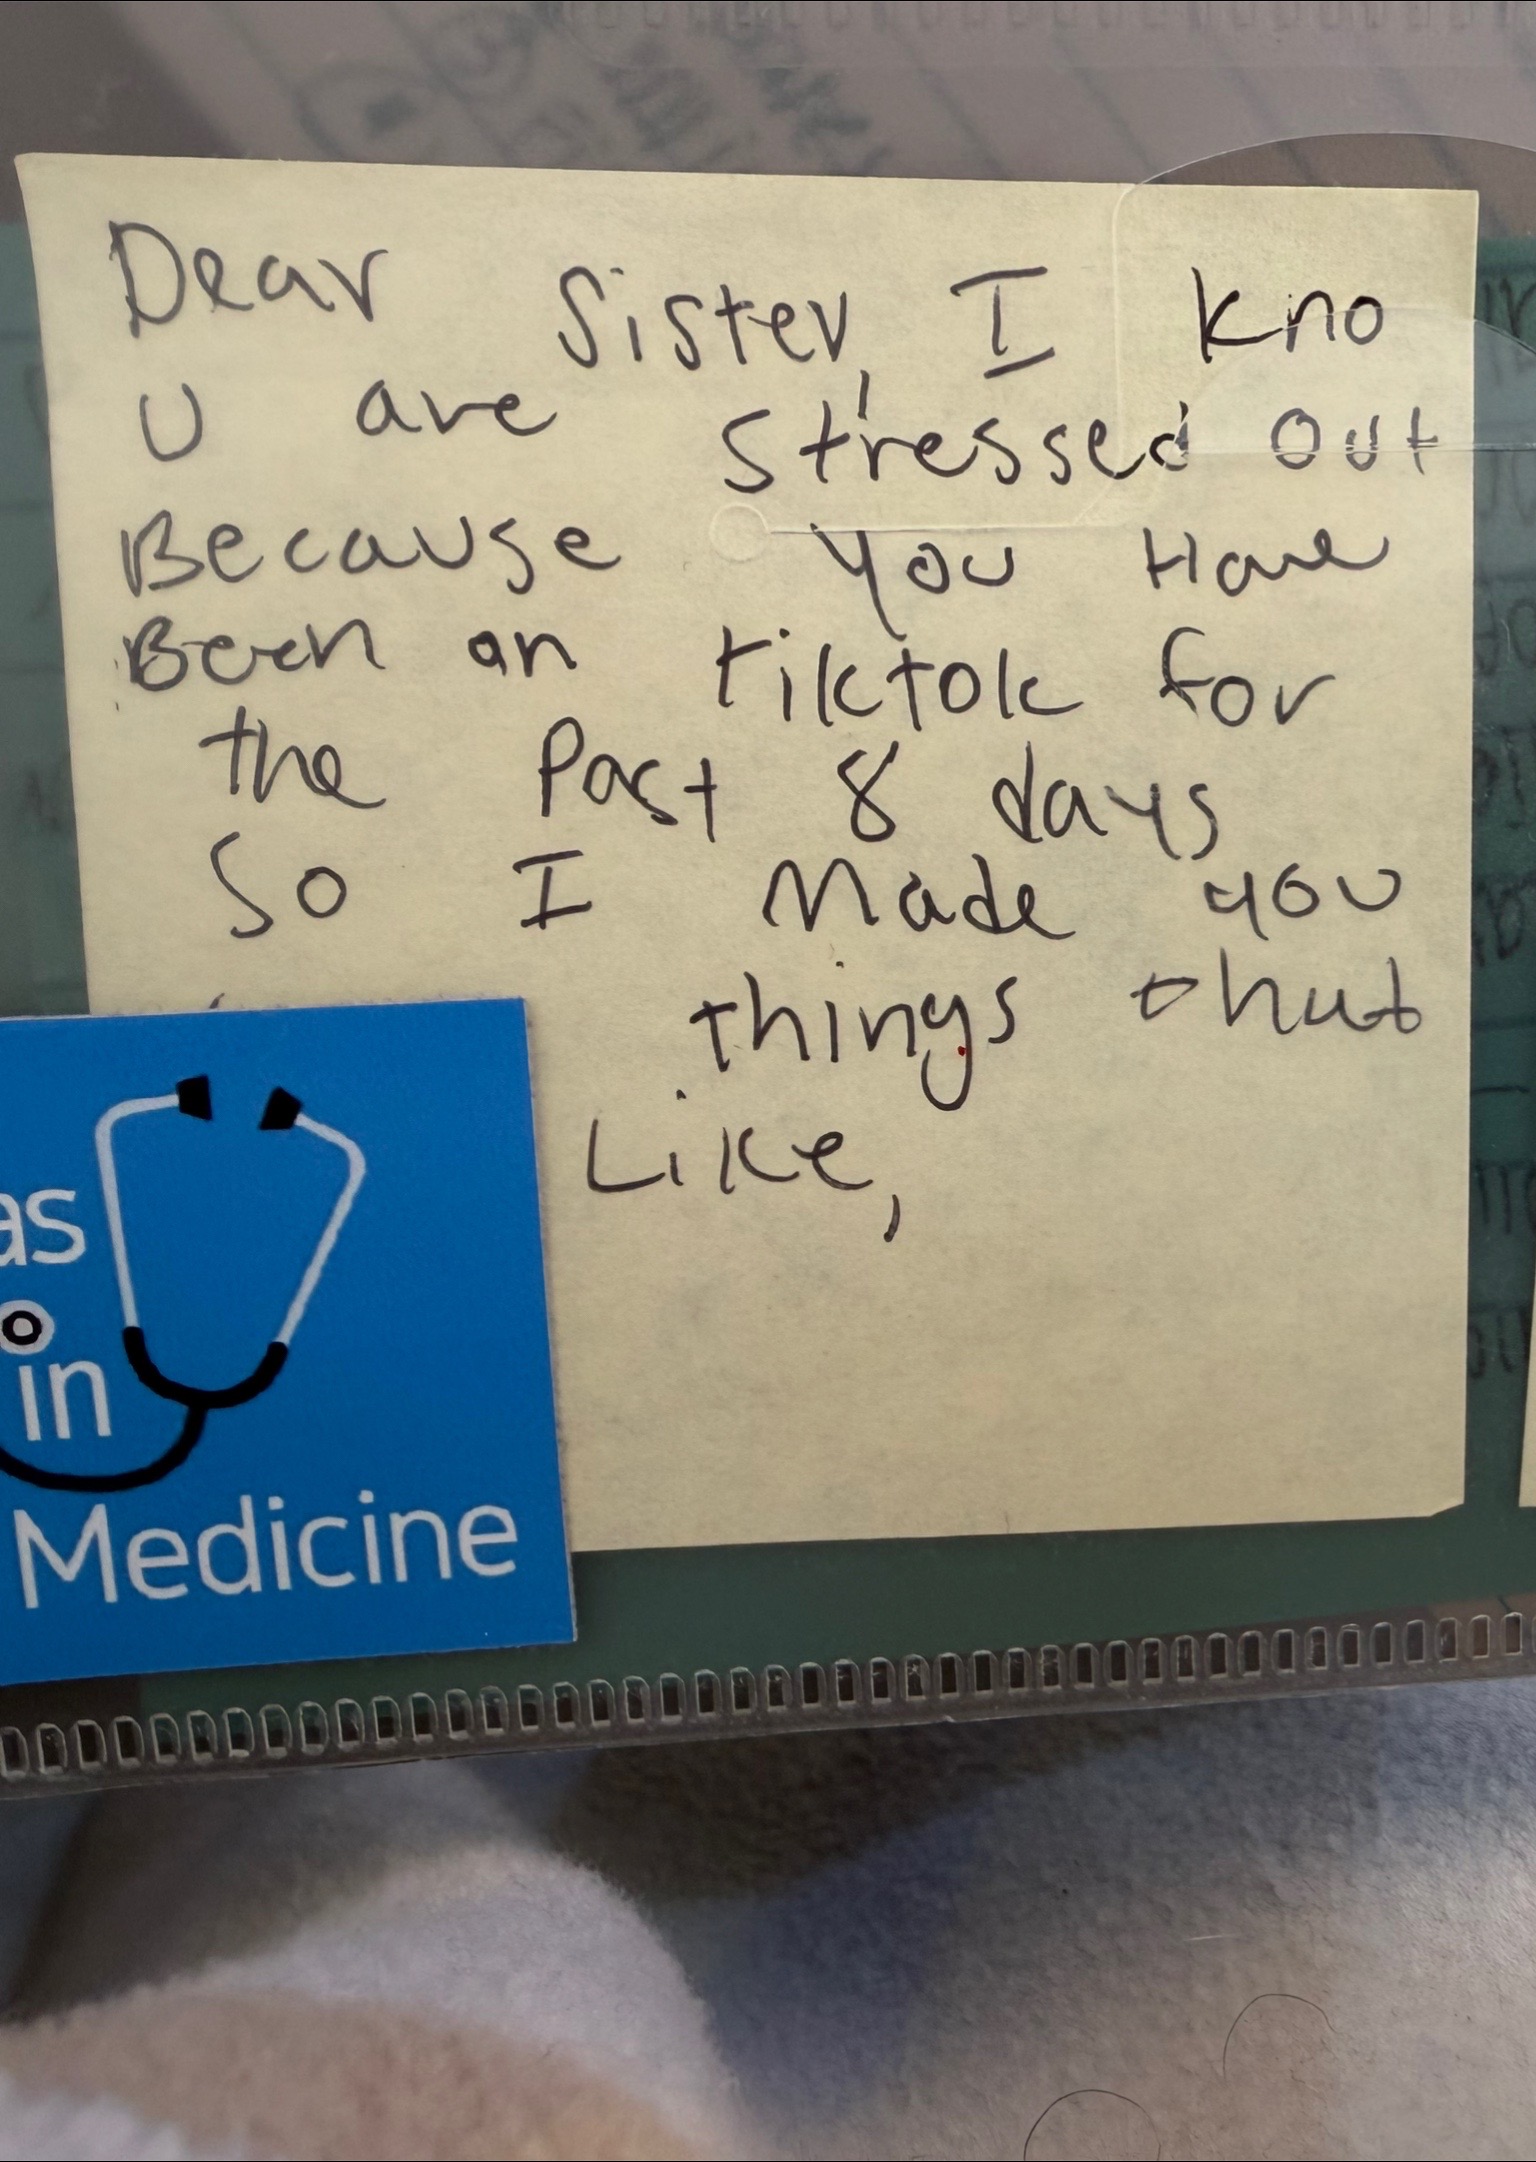 Dear Sister, I kno
U are stressed out
Because you Have
Been on tiktok for
the Past 8 days
So I Made you
things that
Like,
as
in
Medicine